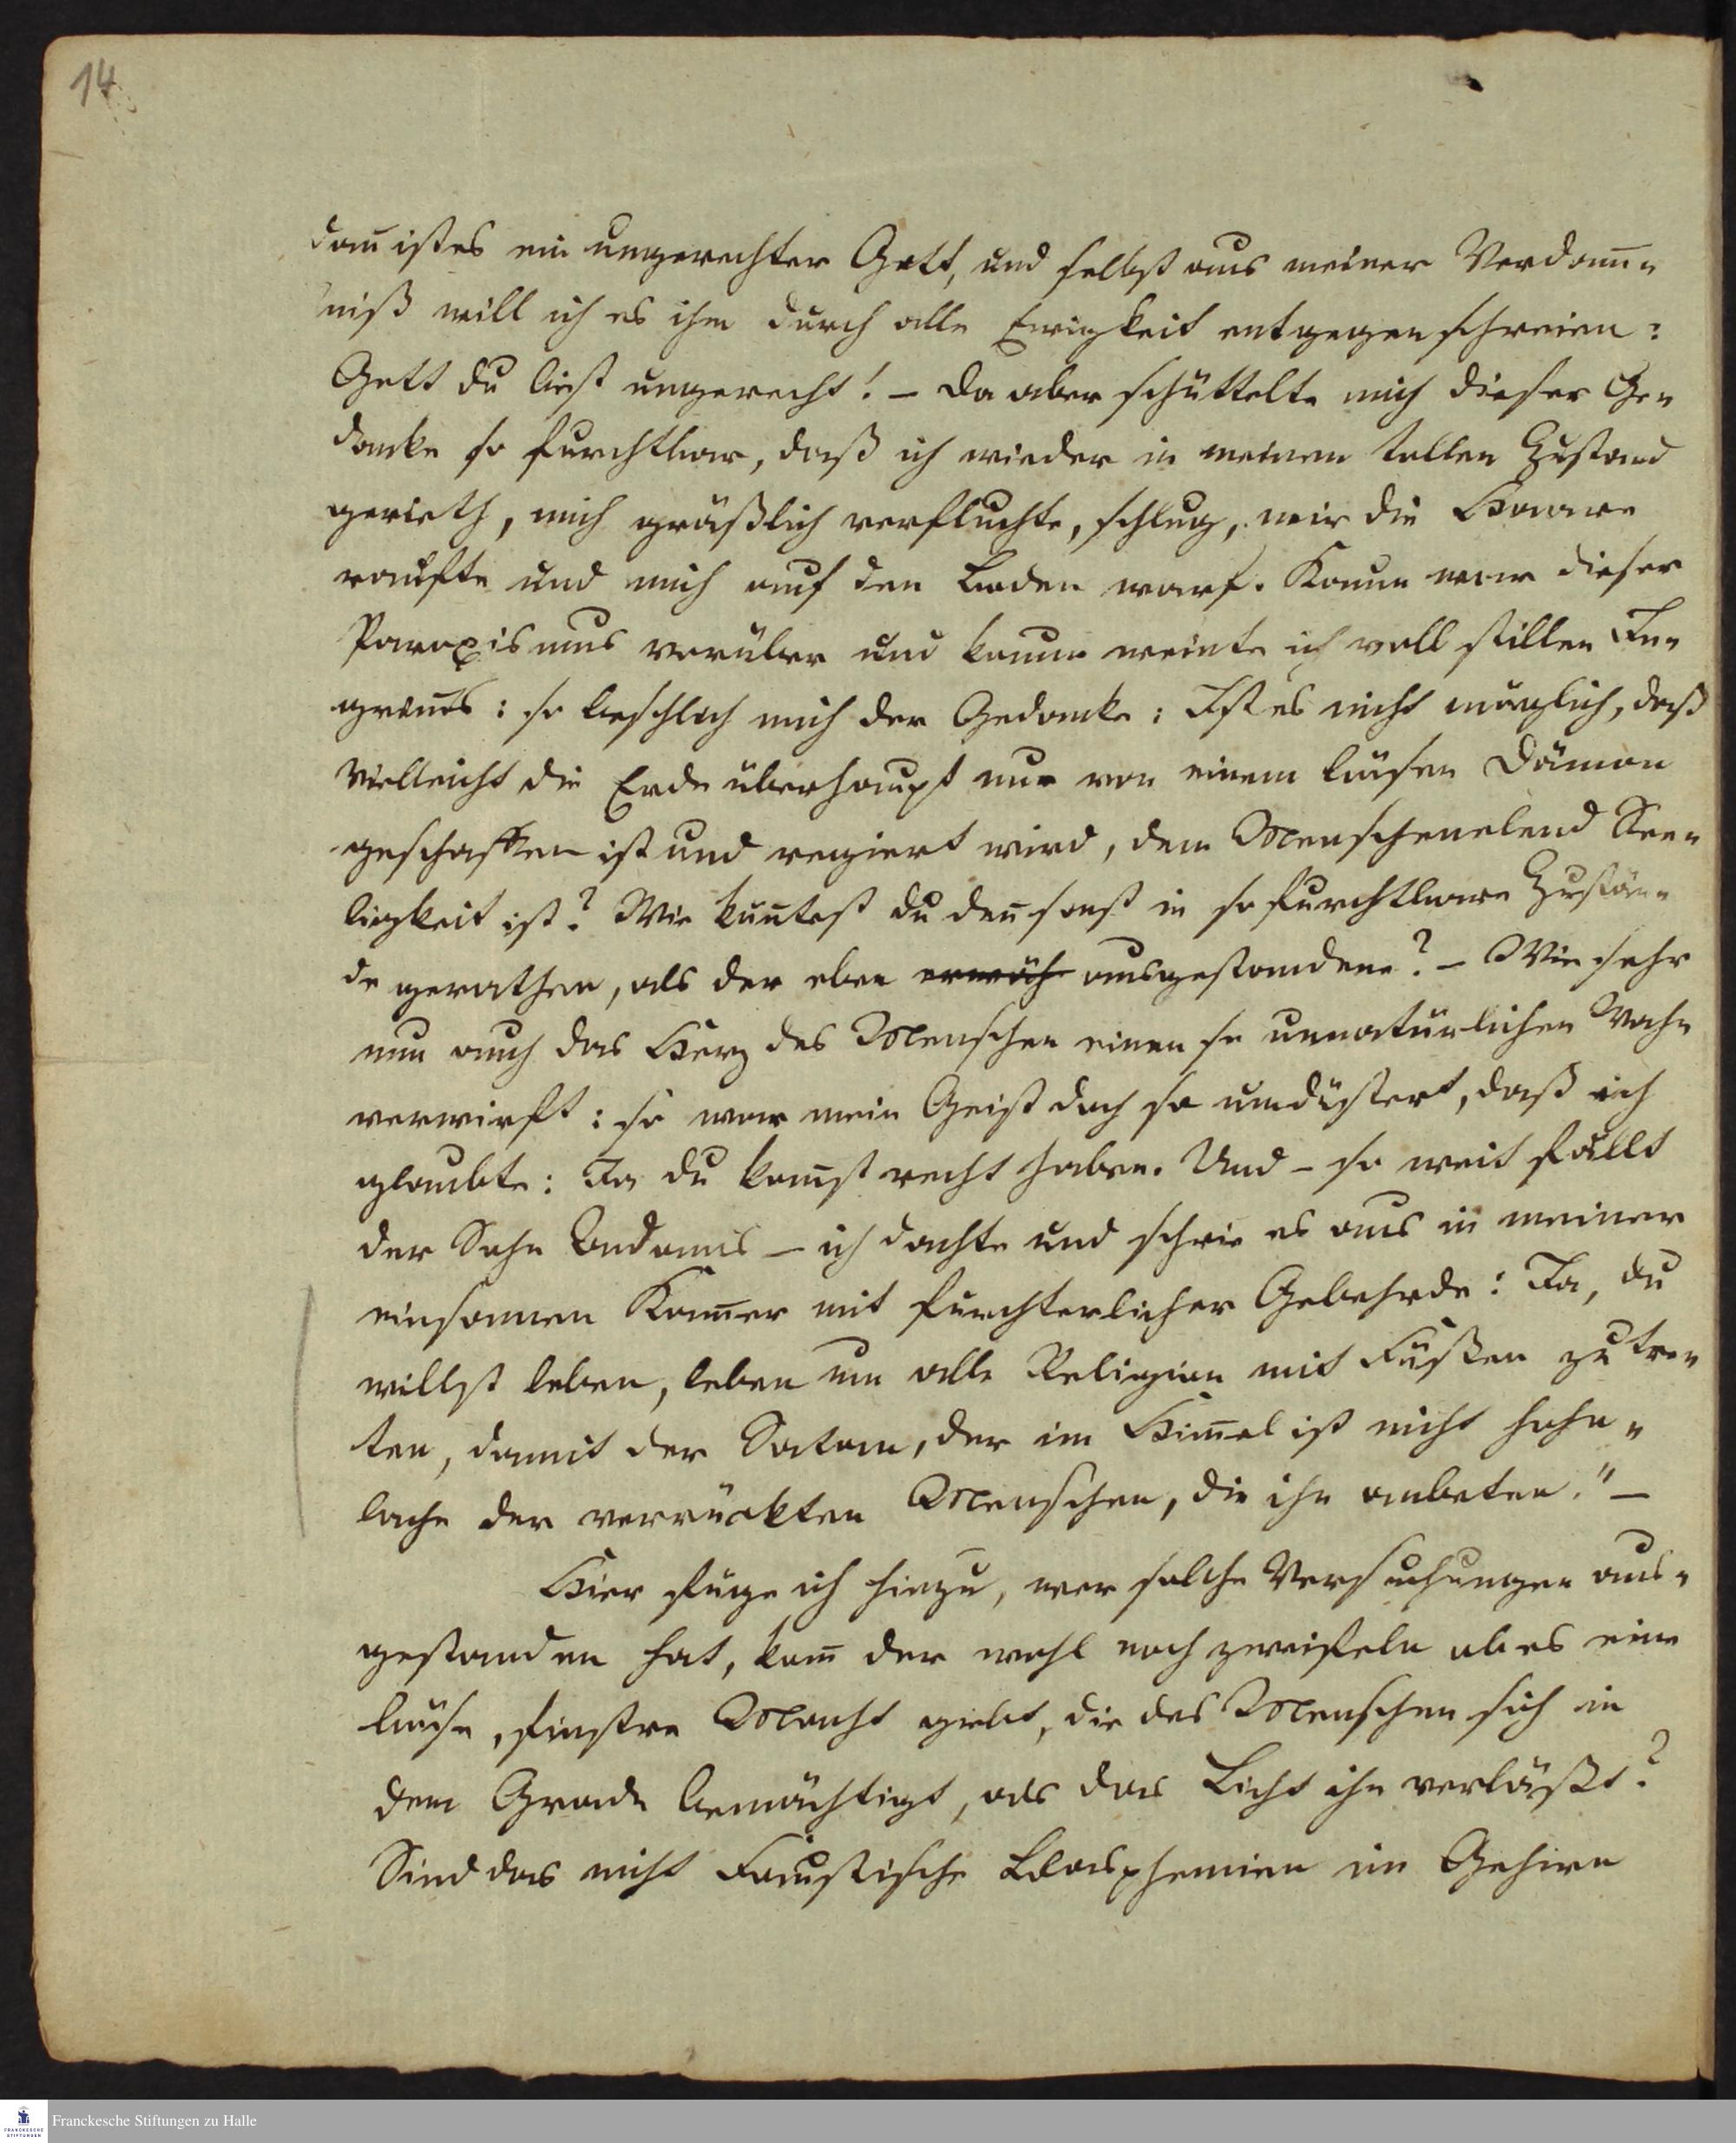 14
dann ist es ein ungerechter Gott, und selbst aus meiner Verdam̅-
niß will ich es ihm durch alle Ewigkeit entgegen schreien:
Gott du bist ungerecht! – Da aber schüttelte mich dieser Ge-
danke so furchtbar, daß ich wieder in meinen tollen Zustand
gerieth, mich gräßlich verfluchte, schlug, mir die Haare
raufte und mich auf den Boden warf. Kaum war dieser
Paroxismus vorüber und kaum weinte ich voll stillen In-
grim̅s: so beschlich mich der Gedanke: Ist es nicht möglich, daß
vielleicht die Erde überhaupt nur von einem bösen Dämon
geschaffen ist und regiert wird, dem Menschenelend See-
ligkeit ist? Wie kon̅test du den̅ sonst in so furchtbare Zustän-
de gerathen, als der eben erwäh ausgestandene? – Wie sehr
nun auch das Herz des Menschen einen so unnatürlichen Wahn
verwirft: so war mein Geist doch so umdüstert, daß ich
glaubte: Ja du kan̅st recht haben. Und – so weit fällt
der Sohn Adams – ich dachte und schrie es aus in meiner
einsamen Kam̅er mit furchterlicher Gebehrde: Ja, du
willst leben, leben um alle Religion mit Füßen zu tre-
ten, damit der Satan, der im Him̅el ist nicht hohn-
lache der verrückten Menschen, die ihn anbeten." –
Hier füge ich hinzu, wer solche Versuchungen aus-
gestanden hat, kan̅ der wohl noch zweifeln ob es eine
böse, finstre Macht giebt, die des Menschen sich in
dem Grade bemächtigt, als das Licht ihn verläßt?
Sind das nicht Faustische Blasphemien im Gehirn
Franckesche Stiftungen zu Halle